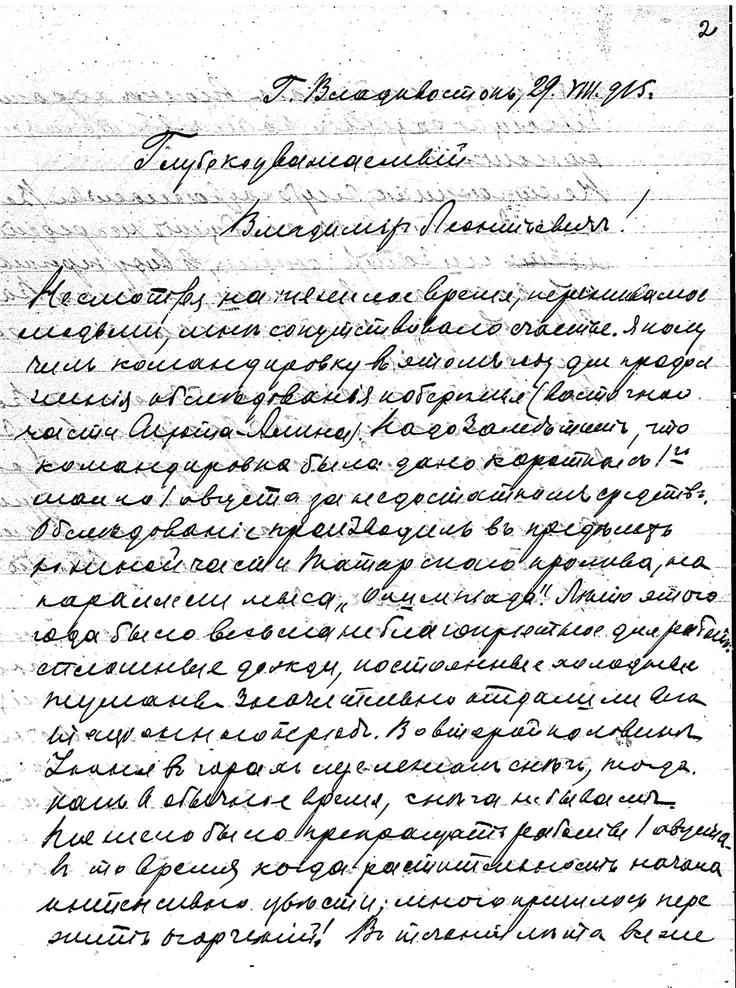 2
Г. Владивостокъ, 29. VIII. 915.
Глубокоуважаемый
Владимир Леонтьевичъ!
Несмотря на тяжелое время, переживаемое
людьми, мнѣ сопутствовало счастье. Я полу
чилъ командировку в этомъ году для продол
женія обслѣдованія побережья (восточной
части Сихотэ-Алиня). Надо замѣтить, что
командировка была дана короткая съ 1го
мая по 1 августа за недостаткомъ средствъ.
Обслѣдованіе производилъ въ предѣлахъ
южной части Татарскаго пролива, на
параллели мыса „Олимпіада". Лѣто этого
года было весьма неблагопріятное для работы:
сплошные дожди, постоянные холодные
туманы значительно отдалили веге
таціонный періодъ. Во второй половинѣ
Іюня в горахъ еще лежалъ снѣгъ, тогда
какъ в обычное время, снѣга не бываетъ.
Тяжело было прекращать работы 1 августа
в то время когда растительность начала
интенсивно цвѣсти; много пришлось пере
жить огорченій! Въ теченіи лѣта все же